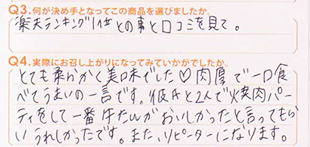 Q3.何が決め手となってこの商品を選びましたか。
楽天ランキング1位との事と口コミを見て。
Q4.実際にお召し上がりになってみていかがでしたか。
とても柔らかく美味でした♡肉厚で一口食
べてうまいの一言です。彼氏と2人で焼肉パー
ティをして一番牛たんがおいしかったと言ってもら
いうれしかったです。また、リピーターになります。